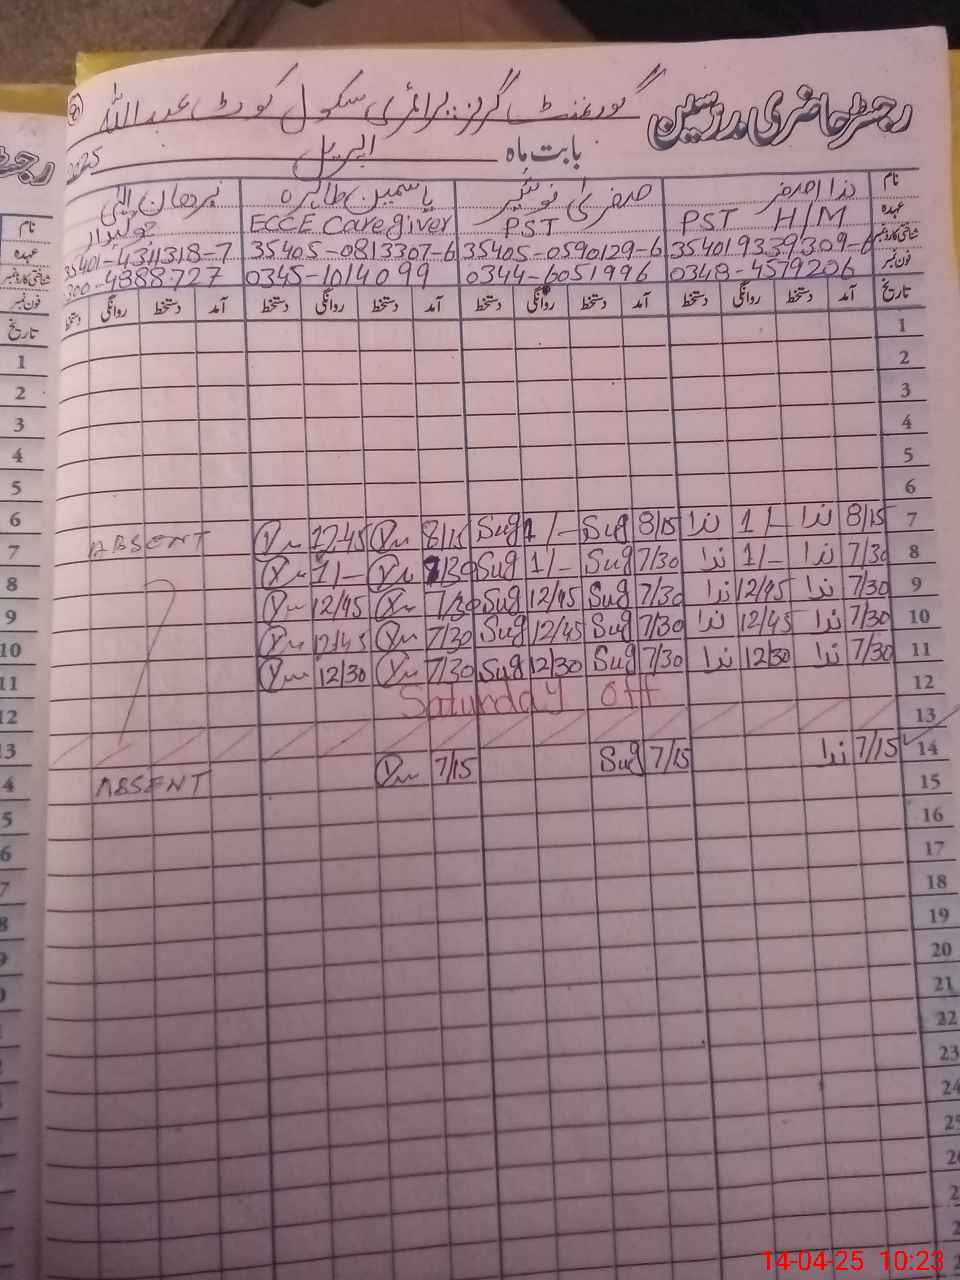 رجسٹر حاضری مدرسین گورنمنٹ گرلز پرائمری سکول کوٹ عبداللہ
بابت ماہ اپریل 2025
نام ندا اصغر صغریٰ نورین یاسمین طاہرہ برھان الہی
عہدہ PST H/M PST ECCE Caregiver چوکیدار
شناختی کارڈ نمبر 354019339309-6 35405-0590129-6 35405-0813307-6
فون نمبر 0348-4579206 0344-6051996 0345-1014099 300-4888727
تاریخ آمد دستخط روانگی دستخط آمد دستخط روانگی دستخط آمد دستخط روانگی دستخط آمد دستخط روانگی دستخط
1
2
3
4
5
6
7 8/15 ندا 1/- ندا 8/15 Sug 1/- Sug 8/15 12/45 ABSENT
8 7/30 ندا 1/- ندا 7/30 Sug 1/- Sug 7/30 1/-
9 7/30 ندا 12/45 ندا 7/30 Sug 12/45 Sug 7/30 12/45
10 7/30 ندا 12/45 ندا 7/30 Sug 12/45 Sug 7/30 12/45
11 7/30 ندا 12/30 ندا 7/30 Sug 12/30 Sug 7/30 12/30
12 Saturday off
13
14 7/15 ندا 7/15 Sug 7/15 ABSENT
15
16
17
18
19
20
21
22
23
24
25
رجسٹر
نام
عہدہ
شناختی کارڈ نمبر
فون نمبر
تاریخ
1
2
3
4
5
6
7
8
9
10
11
12
13
14-04-25 10:23